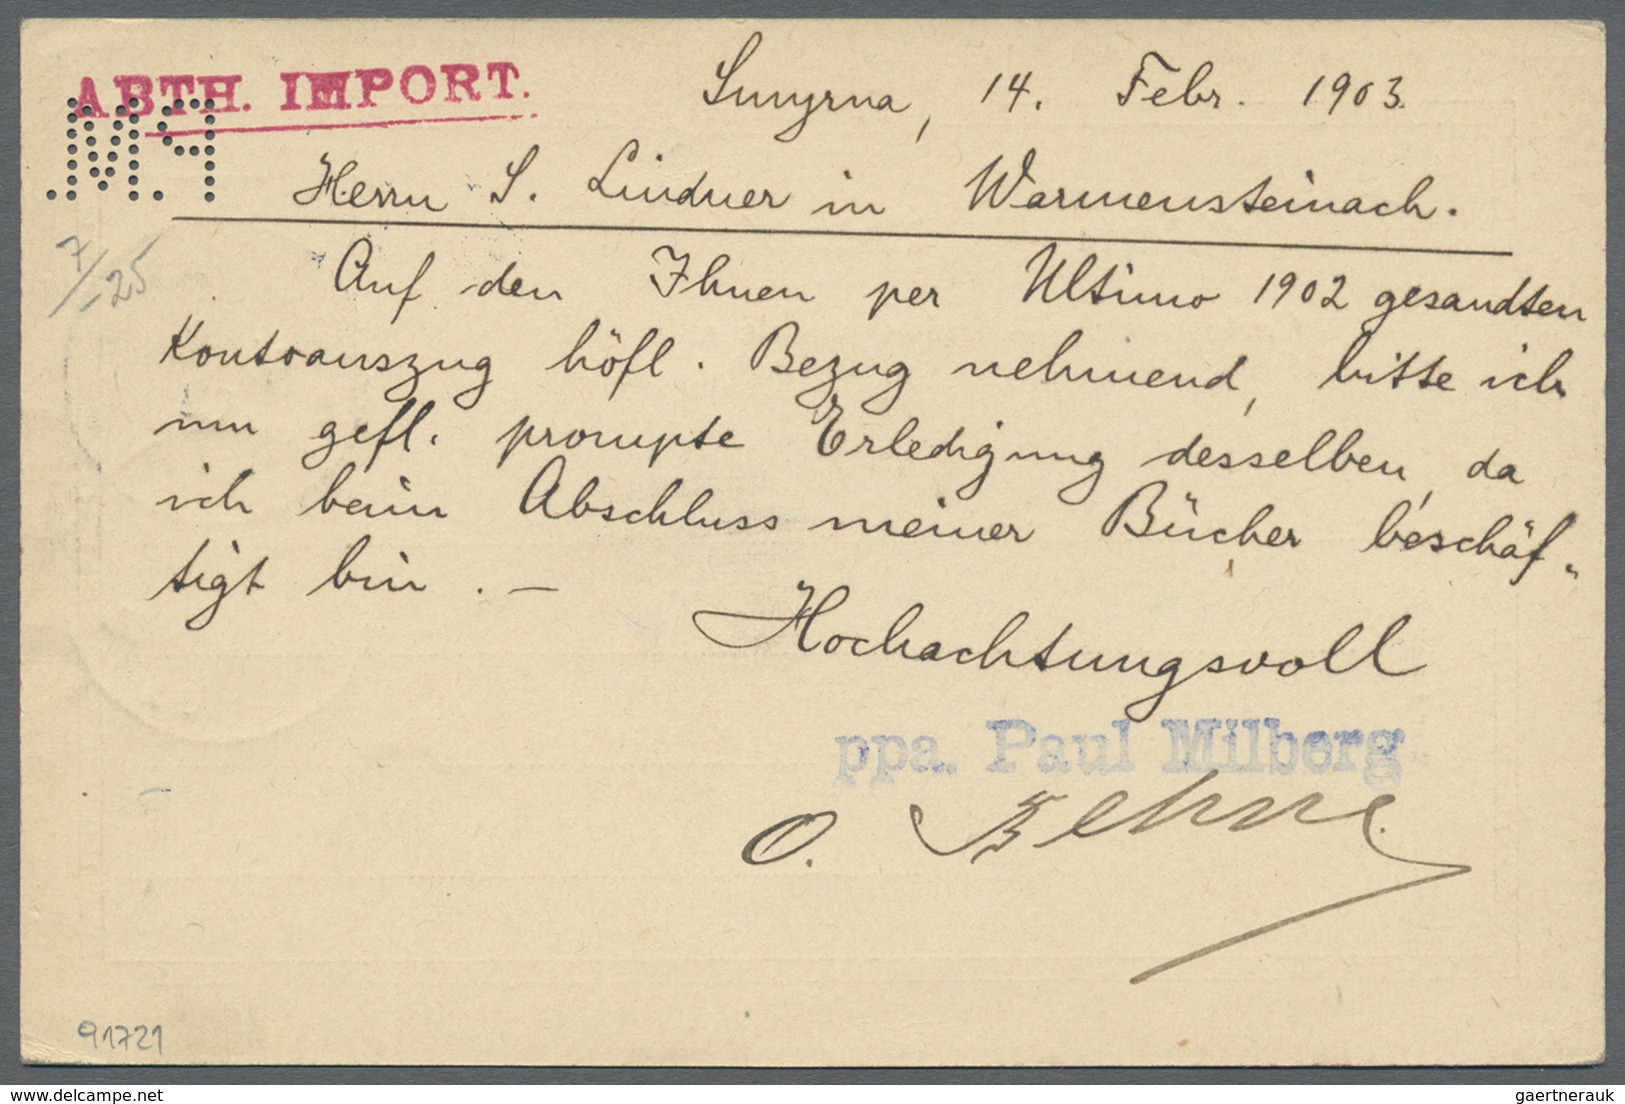 ABTH. IMPORT.
Smyrna, 14. Febr. 1903.
.M.P
Herrn S. Lindner in Warmensteinach.
7/25
Auf den Ihnen per Ultimo 1902 gesandten
Kontoauszug höfl. Bezug nehmend, bitte ich
um gefl. prompte Erledigung desselben, da
ich beim Abschluss meiner Bücher beschäf-
tigt bin. –
Hochachtungsvoll
ppa. Paul Milberg
O. Behne.
91721
www.delcampe.net
gaertnerauk